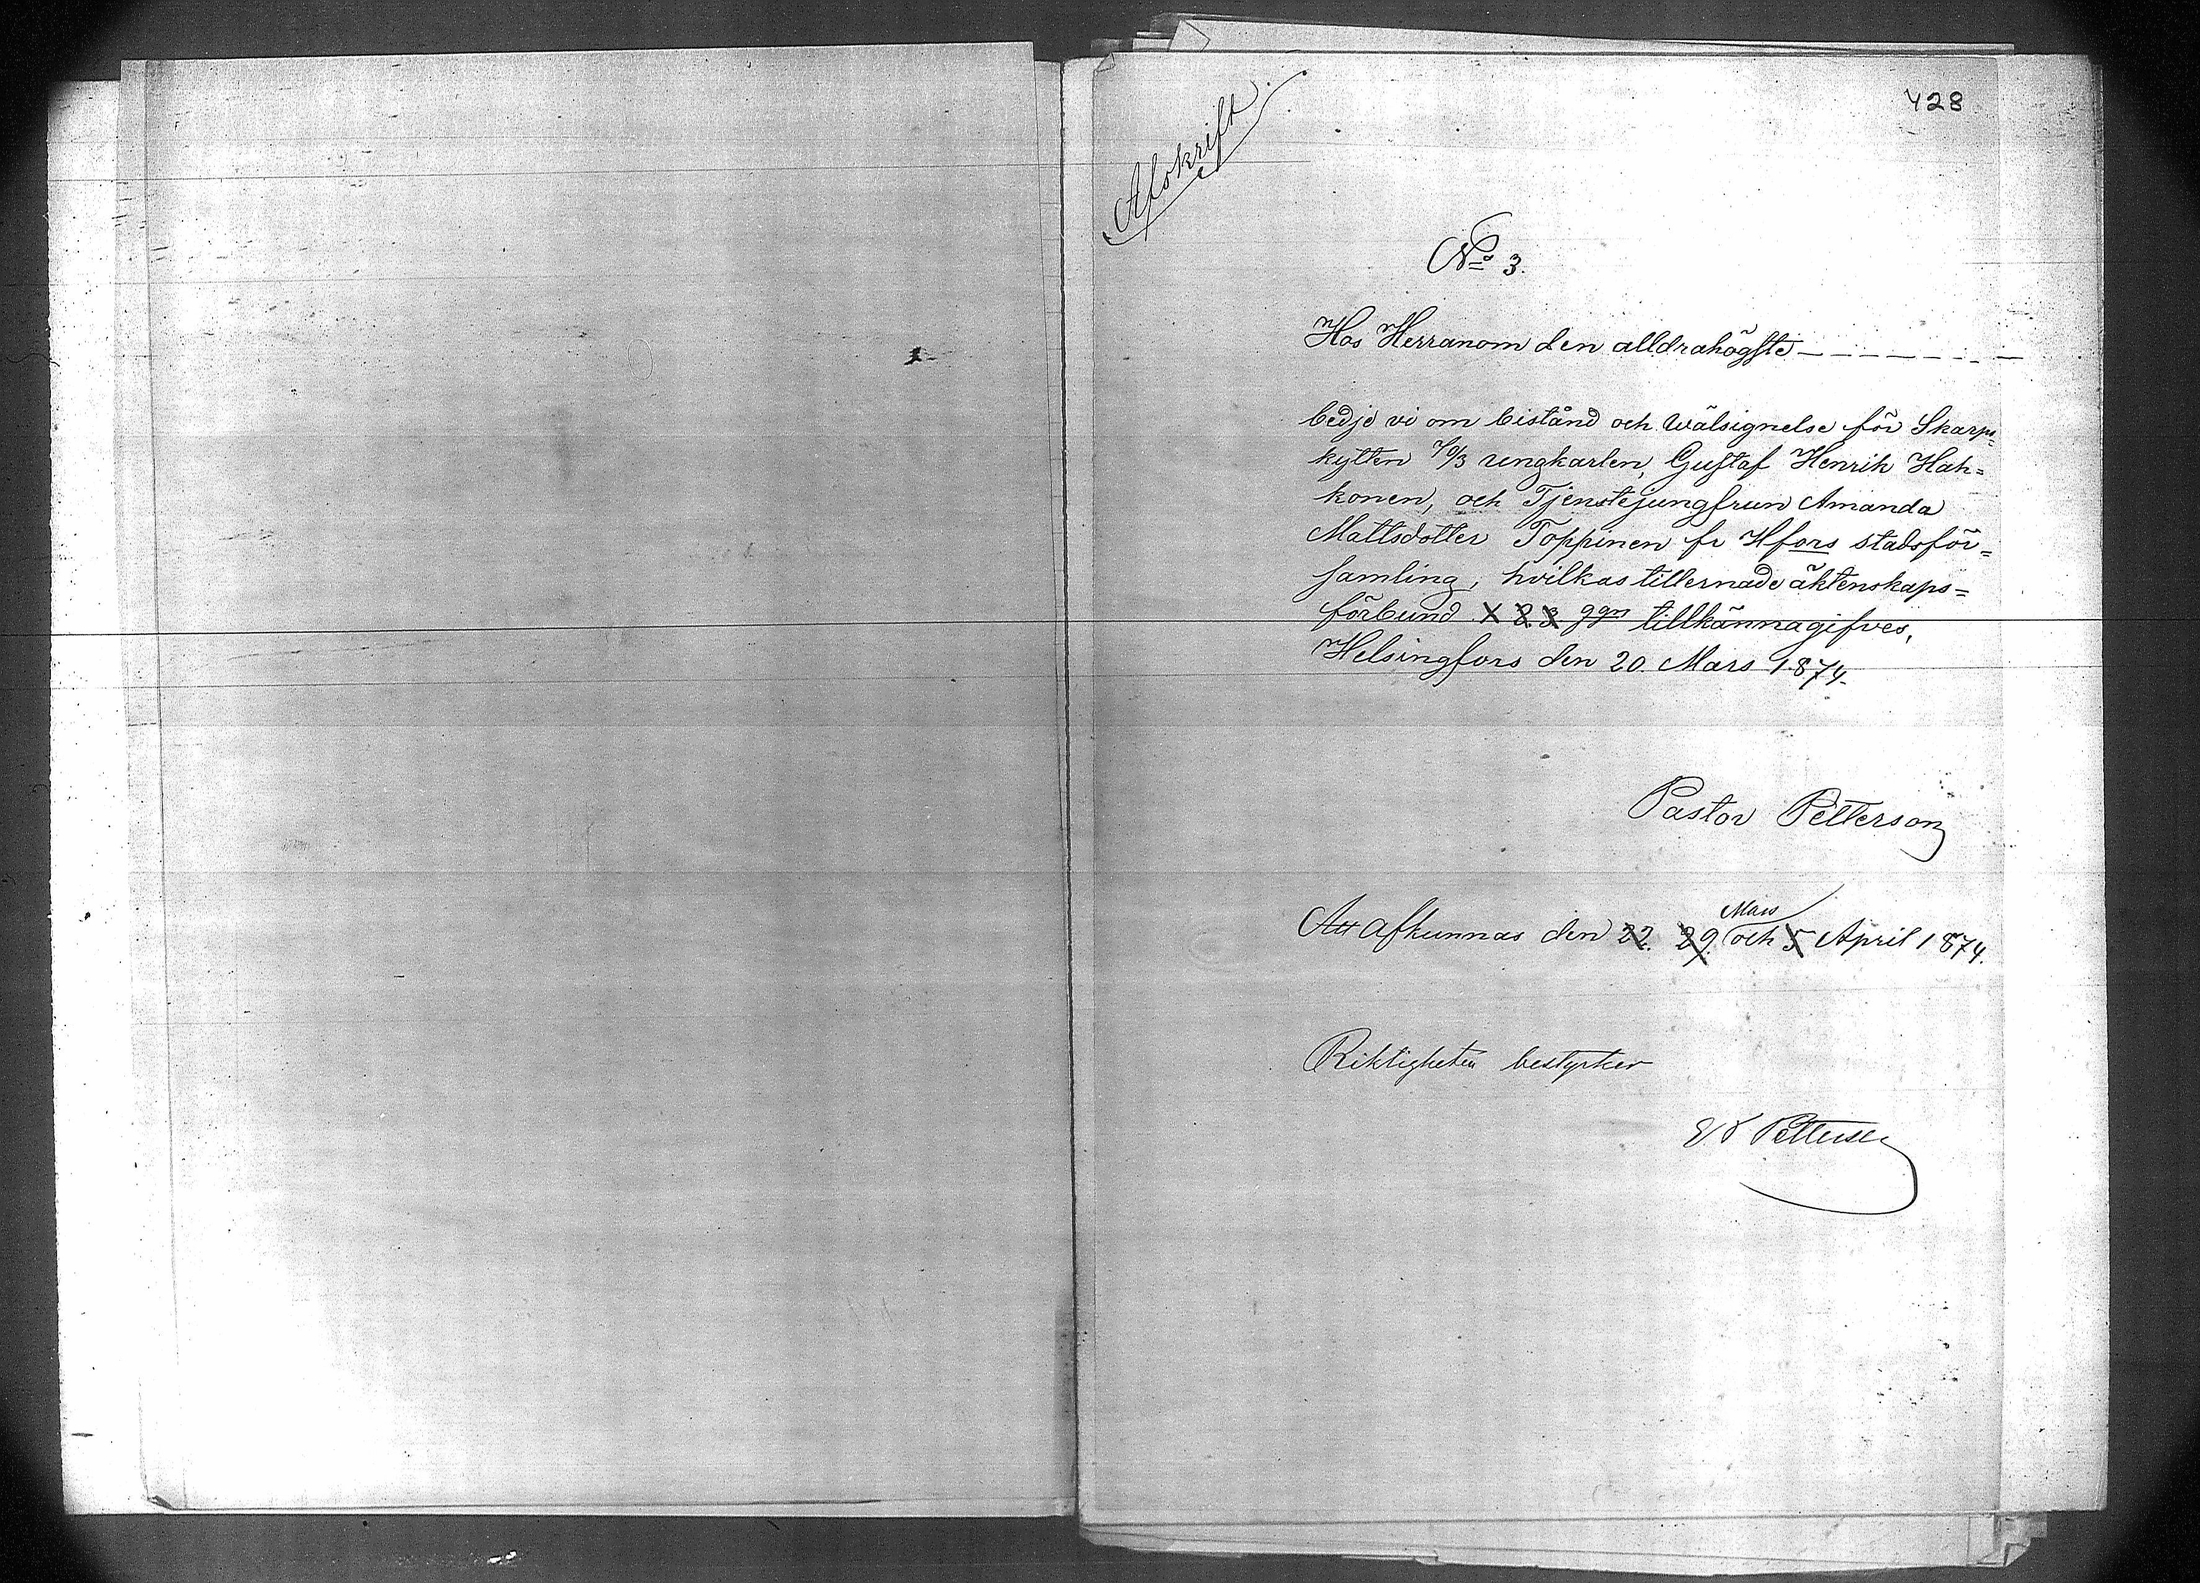 428
Afskrift.
No 3.
Hos Herranom den alldrahögste
bedje vi om bistånd och wälsignelse för Skarps=
kytten ungkarlen, Gustaf Henrik Hah=
konen, och Tjenstejungfrun Amanda
Mattsdotter Toppinen fr Hfors stadsför=
samling, hvilkas tillernade äktenskaps=
förbund 1 2. 3 ggn tillkännagifves,
Helsingfors den 20. Mars 1874.
Pastor Petterson
Mars
Att afkunnas den 22. 29. och 5 April 1874.
Riktigheten bestyrker
Petterson